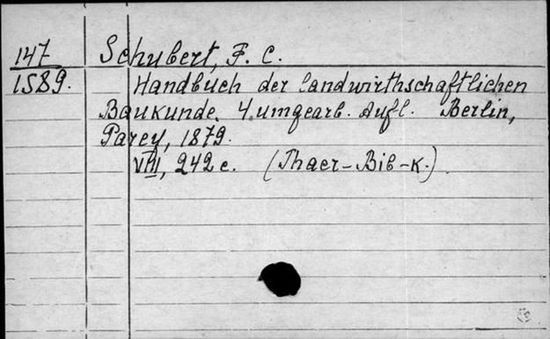 147
1589.
Schubert, F. C.
Handbuch der landwirthschaftlichen
Baukunde. 4 umgearb. Aufl. Berlin,
Parey, 1879.
VIII, 242 c. (Thaer-Bib-k.)